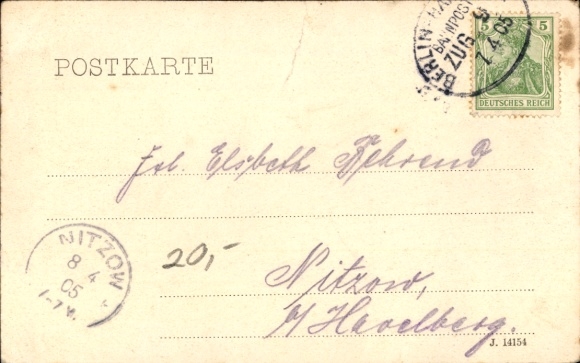 POSTKARTE
BERLIN-HA
BAHNPOST
ZUG 3
7.4.05
5 5
DEUTSCHES REICH
Frl. Elsbeth Behrend
NITZOW
8 4
05
20,-
Nitzow,
b/ Havelberg.
J. 14154